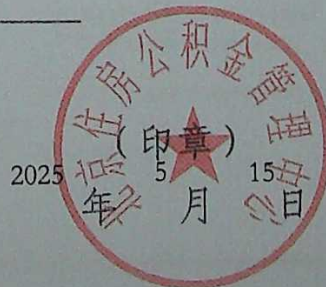 北京住房公积金管理中心
（印章）
2025 5 15
年 月 日